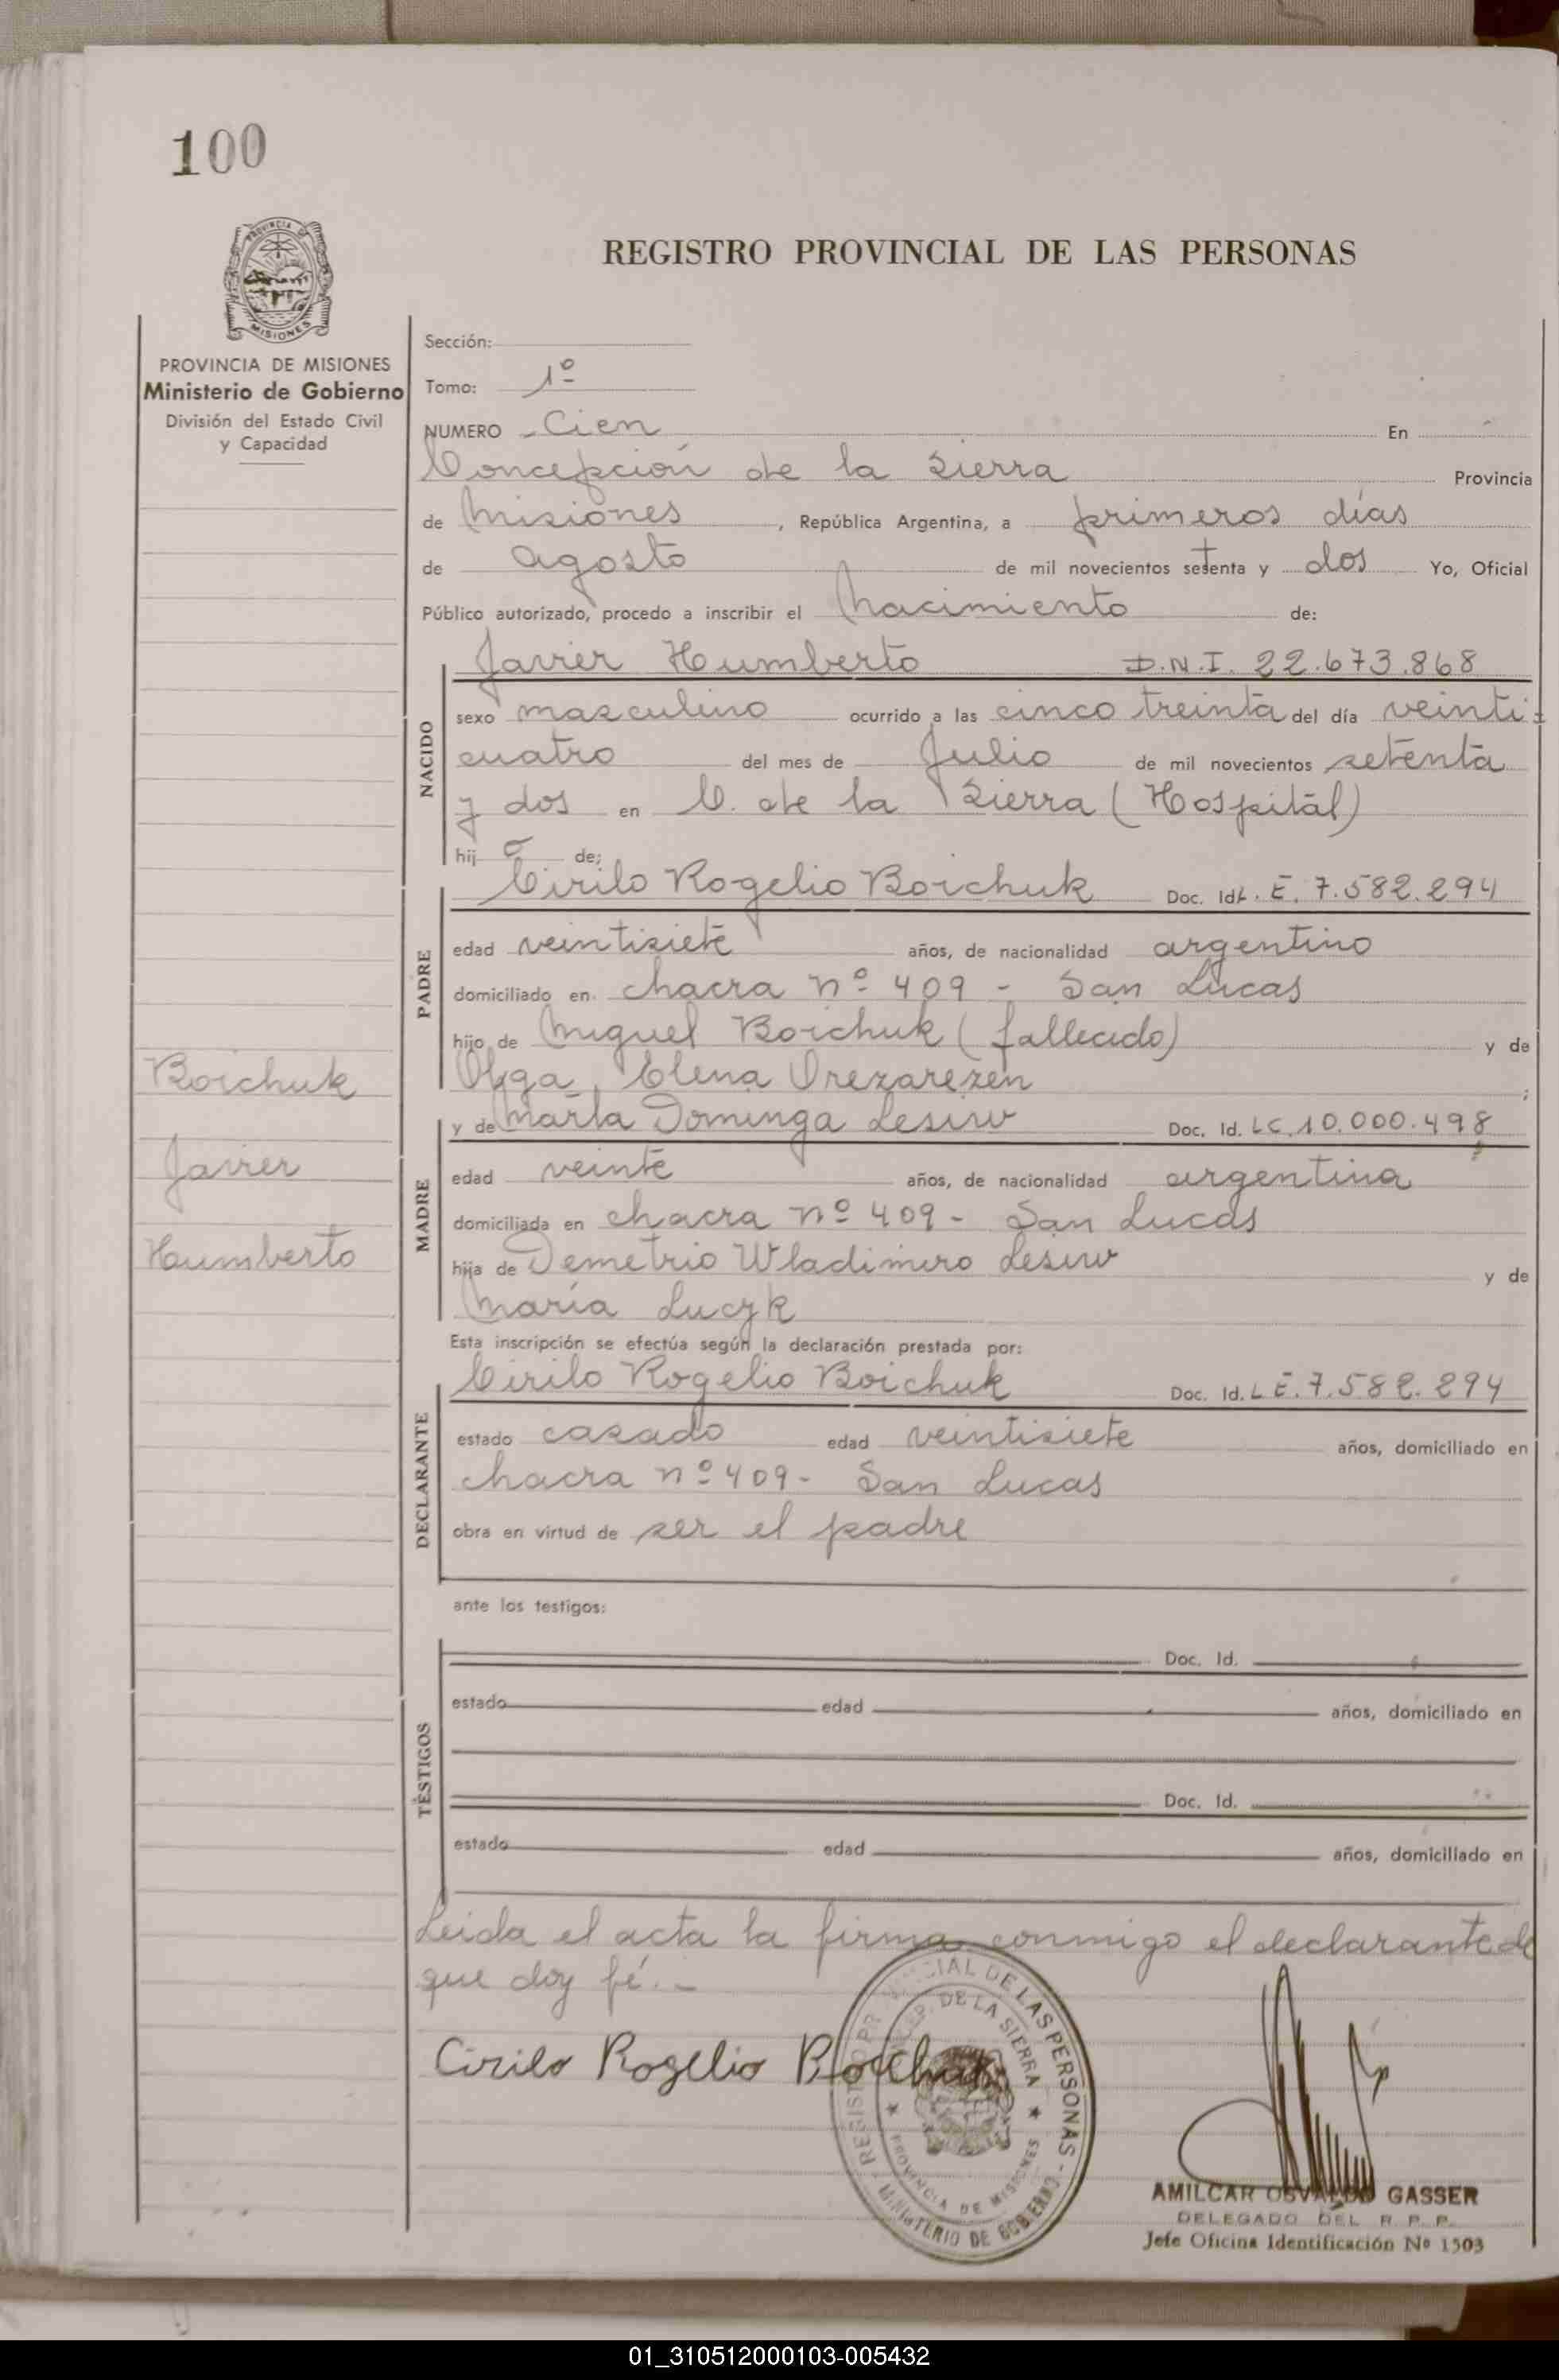 100
PROVINCIA DE
MISIONES
REGISTRO PROVINCIAL DE LAS PERSONAS
PROVINCIA DE MISIONES
Ministerio de Gobierno
División del Estado Civil
y Capacidad
Sección:
Tomo: 1º
NUMERO - Cien En
Concepción de la Sierra Provincia
de Misiones, República Argentina, a primeros días
de agosto de mil novecientos setenta y dos Yo, Oficial
Público autorizado, procedo a inscribir el Nacimiento de:
NACIDO
Javier Humberto D.N.I. 22.673.868
sexo masculino ocurrido a las cinco treinta del día veinti-
cuatro del mes de Julio de mil novecientos setenta
y dos en C. de la Sierra (Hospital)
hij o de:
PADRE
Cirilo Rogelio Boichuk Doc. Id L.E. 7.582.294
edad veintisiete años, de nacionalidad argentino
domiciliado en chacra nº 409 - San Lucas
hijo de Miguel Boichuk (fallecido) y de
Olga Elena Orezarezen
Boichuk
Javier
Humberto
MADRE
y de Marta Dominga Lesiw Doc. Id. LC. 10.000.498
edad veinte años, de nacionalidad argentina
domiciliada en chacra nº 409 - San Lucas
hija de Demetrio Wladimiro Lesiw y de
María Luczk
Esta inscripción se efectúa según la declaración prestada por:
DECLARANTE
Cirilo Rogelio Boichuk Doc. Id. L E. 7.582.294
estado casado edad veintisiete años, domiciliado en
chacra nº 409 - San Lucas
obra en virtud de ser el padre
ante los testigos:
TESTIGOS
Doc. Id.
estado edad años, domiciliado en
Doc. Id.
estado edad años, domiciliado en
Leida el acta la firma conmigo el declarante de
que doy fé.-
Cirilo Rogelio Boichuk
REGISTRO PROVINCIAL DE LAS PERSONAS - MINISTERIO DE GOBIERNO
CONCEP. DE LA SIERRA ★ PROVINCIA DE MISIONES ★
AMILCAR OSVALDO GASSER
DELEGADO DEL R. P. P.
Jefe Oficina Identificación Nº 1503
01_310512000103-005432